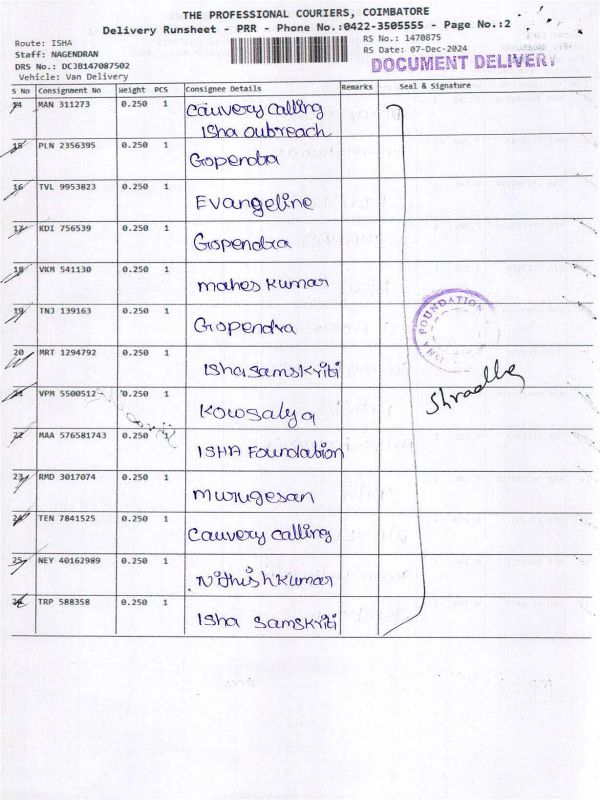 THE PROFESSIONAL COURIERS, COIMBATORE
Delivery Runsheet - PRR - Phone No.:0422-3505555 - Page No.:2
Route: ISHA
Staff: NAGENDRAN
DRS No.: DCJB147087502
Vehicle: Van Delivery
RS No.: 1470875
RS Date: 07-Dec-2024
DOCUMENT DELIVERY
S No Consignment No Weight PCS Consignee Details Remarks Seal & Signature
14 MAN 311273 0.250 1 Cauvery Calling
Isha outreach
15 PLN 2356395 0.250 1 Gopendra
16 TVL 9953823 0.250 1 Evangeline
17 KDI 756539 0.250 1 Gopendra
18 VKM 541130 0.250 1 mahes Kumar
19 TNJ 139163 0.250 1 Gopendra
20 MRT 1294792 0.250 1 Isha samskriti
21 VPM 5500512 0.250 1 Kowsalya
22 MAA 576581743 0.250 1 ISHA Foundation
23 RMD 3017074 0.250 1 murugesan
24 TEN 7841525 0.250 1 Cauvery calling
25 NEY 40162989 0.250 1 Nithish kumar
26 TRP 588358 0.250 1 Isha samskriti
ISHA FOUNDATION
Shraddha